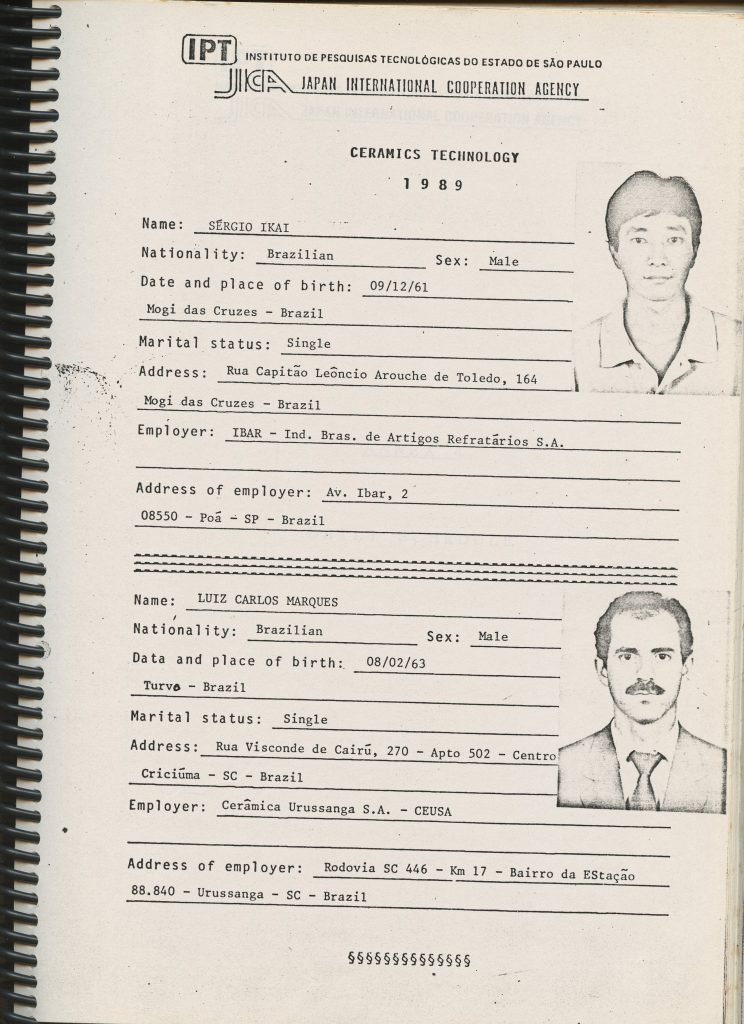 IPT INSTITUTO DE PESQUISAS TECNOLÓGICAS DO ESTADO DE SÃO PAULO
JICA JAPAN INTERNATIONAL COOPERATION AGENCY
CERAMICS TECHNOLOGY
1989
Name: SÉRGIO IKAI
Nationality: Brazilian Sex: Male
Date and place of birth: 09/12/61
Mogi das Cruzes - Brazil
Marital status: Single
Address: Rua Capitão Leôncio Arouche de Toledo, 164
Mogi das Cruzes - Brazil
Employer: IBAR - Ind. Bras. de Artigos Refratários S.A.
Address of employer: Av. Ibar, 2
08550 - Poá - SP - Brazil
Name: LUIZ CARLOS MARQUES
Nationality: Brazilian Sex: Male
Data and place of birth: 08/02/63
Turvo - Brazil
Marital status: Single
Address: Rua Visconde de Cairú, 270 - Apto 502 - Centro
Criciúma - SC - Brazil
Employer: Cerâmica Urussanga S.A. - CEUSA
Address of employer: Rodovia SC 446 - Km 17 - Bairro da EStação
88.840 - Urussanga - SC - Brazil
§§§§§§§§§§§§§§